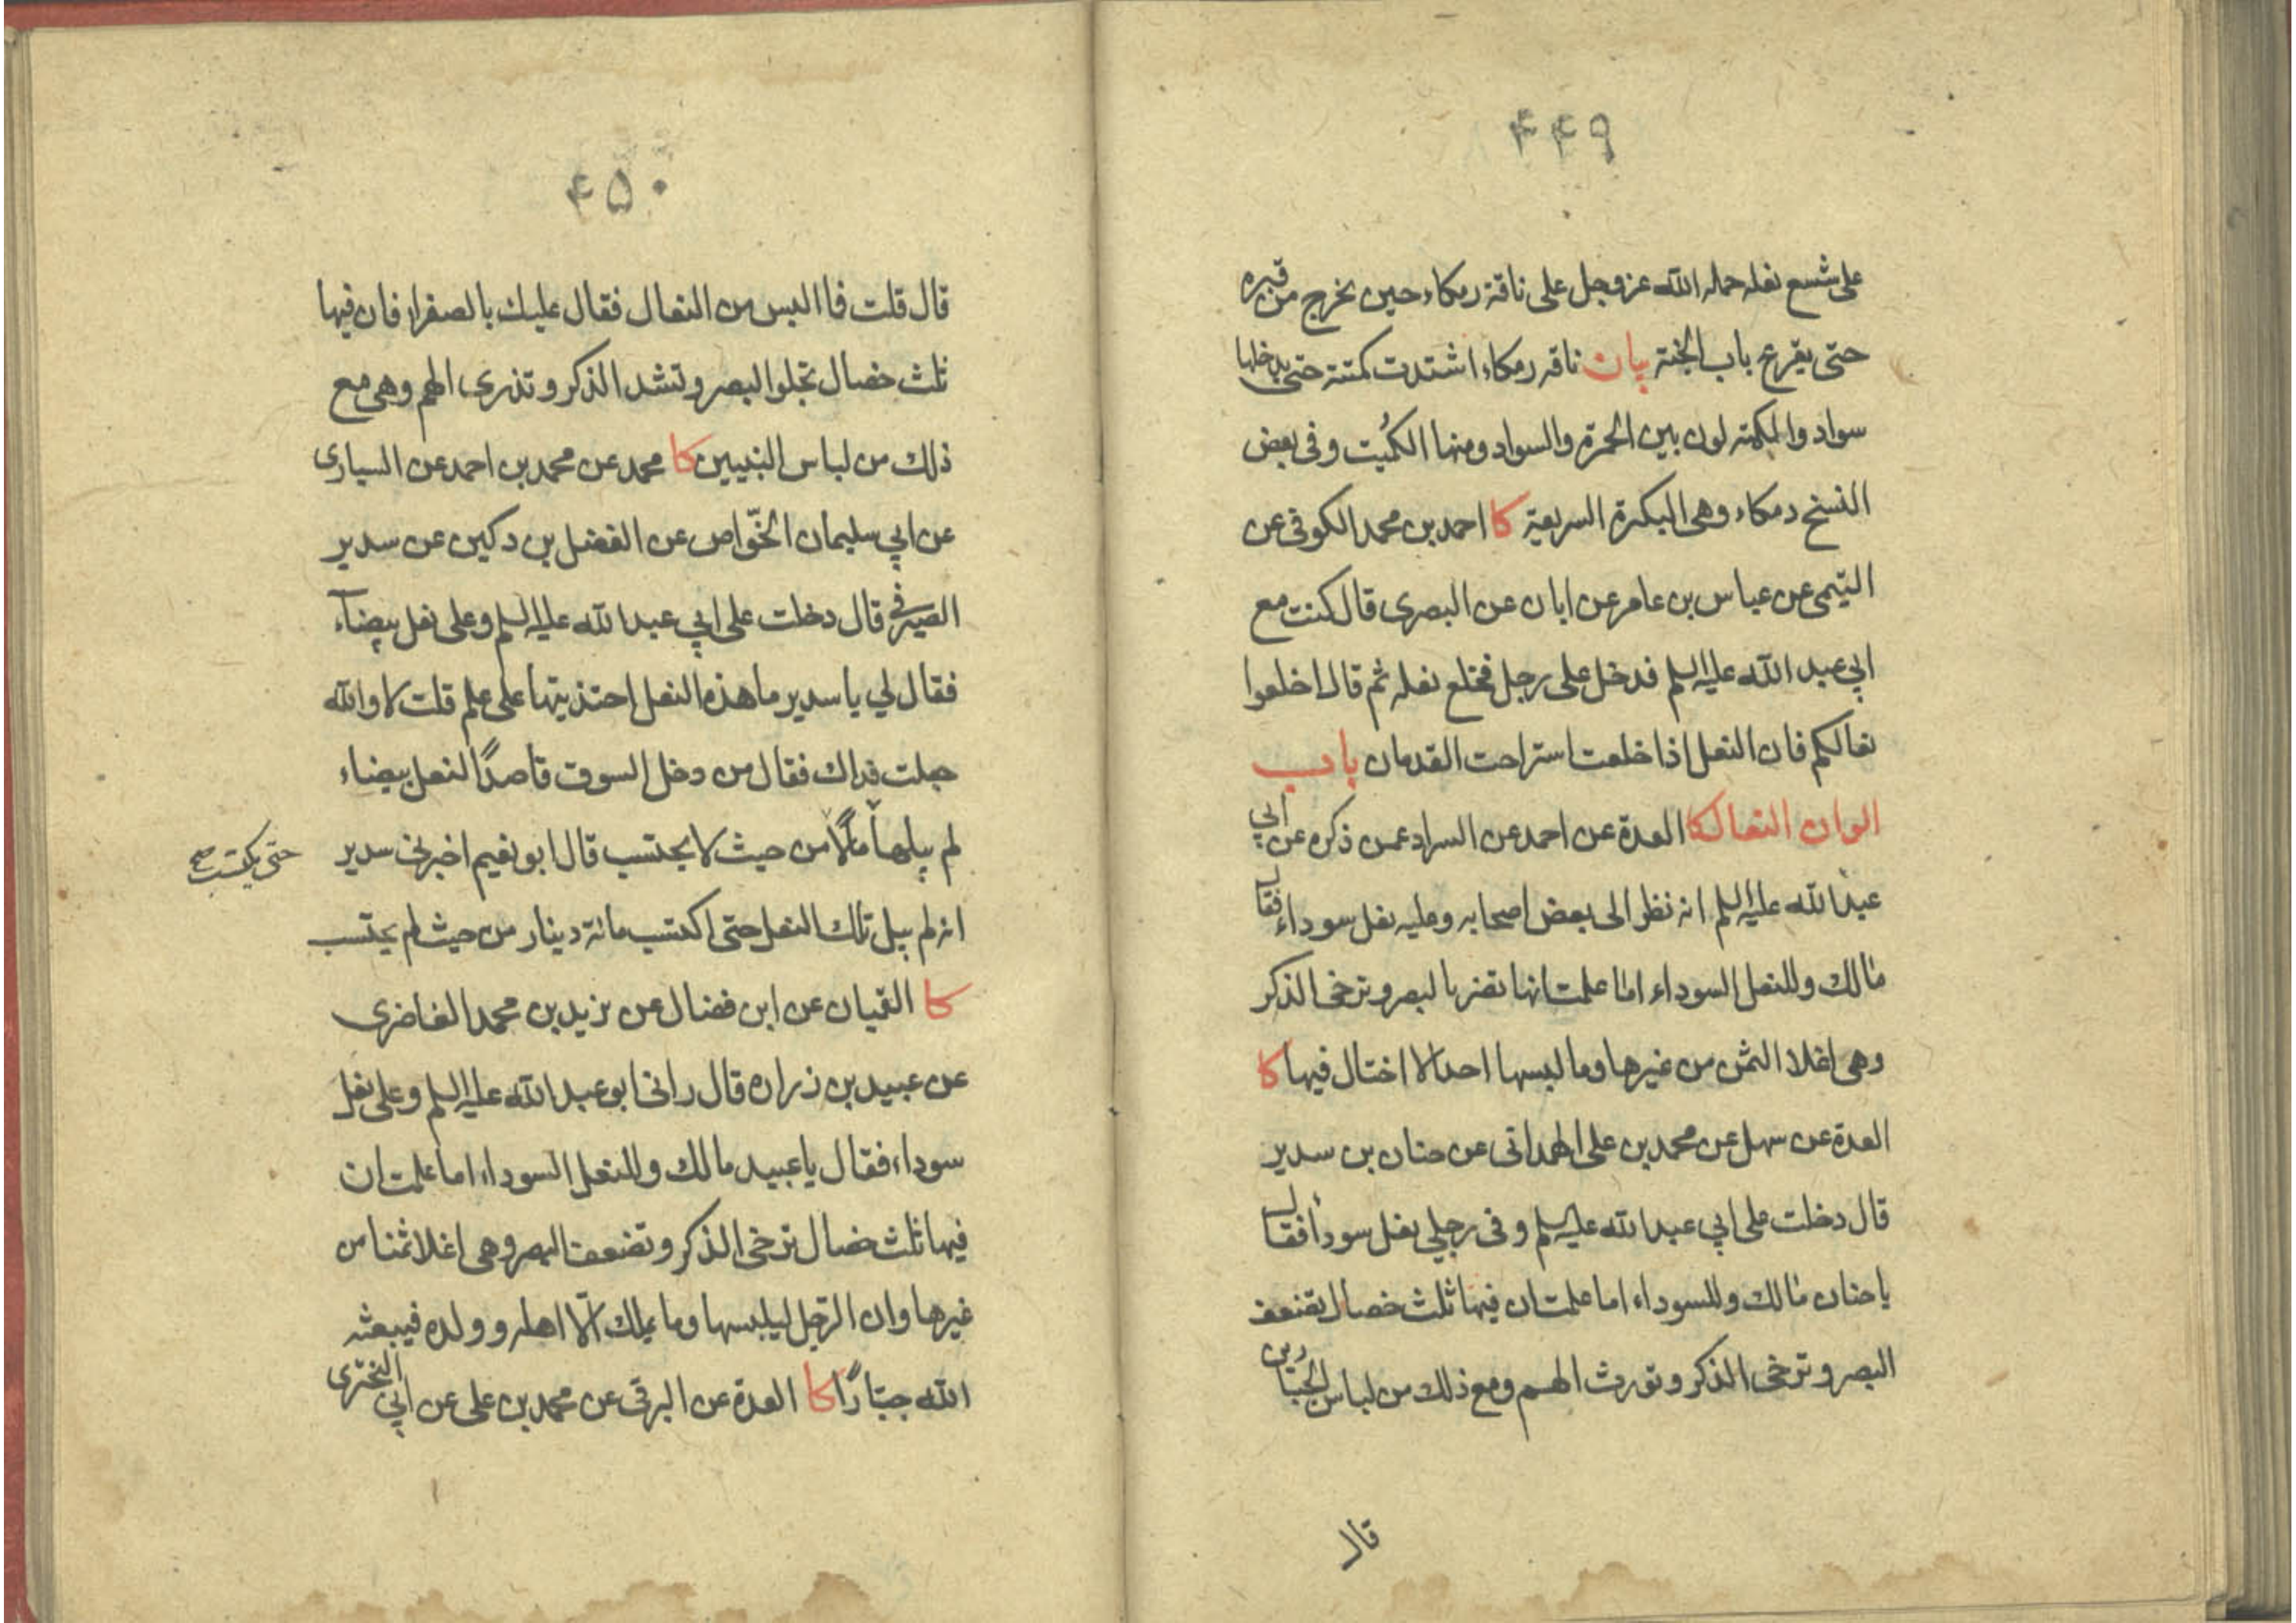 ۴۴۹
على شسع نعله حمله الله عز وجل على ناقة رمكاء حين يخرج من قبره
حتى يقرع باب الجنة بيان ناقه رمكاء اشتدت كمتته حتى يدخلها
سواد والكمته لون بين الحمرة والسواد ومنها الكُميت وفى بعض
النسخ دمكاء وهى البكرة السريعة كا احمد بن محمد الكوفى عن
التيمى عن عباس بن عامر عن ابان عن البصرى قال كنت مع
ابي عبد الله عليه السلم فدخل على رجل فخلع نعله ثم قال اخلعوا
نعالكم فان النعل اذا خلعت استراحت القدمان باب
الوان النعال كا العدة عن احمد عن السراد عمن ذكره عن ابي
عبد الله عليه السلم انه نظر الى بعض اصحابه وعليه نعل سوداء فقال
مالك وللنعل السوداء اما علمت انها تضر بالبصر وترخى الذكر
وهى اغلا الثمن من غيرها وما لبسها احد الا اختال فيها كا
العدة عن سهل عن محمد بن على الهمدانى عن حنان بن سدير
قال دخلت على ابي عبد الله عليه السلم وفى رجلي نعل سودا فقال
يا حنان مالك وللسوداء اما علمت ان فيها ثلث خصال تضعف
البصر وترخى الذكر وتورث الهم ومع ذلك من لباس الجبارين
قال
۴۵۰
قال قلت فما البس من النعال فقال عليك بالصفراء فان فيها
ثلث خصال تجلوا البصر وتشد الذكر وتذرى الهم وهى مع
ذلك من لباس النبيين كا محمد عن محمد بن احمد عن السيارى
عن ابي سليمان الخوّاص عن الفضل بن دكين عن سدير
الصيرفي قال دخلت على ابي عبد الله عليه السلم وعلى نعل بيضاء
فقال لي يا سدير ما هذه النعل احتذيتها على علم قلت لا والله
جعلت فداك فقال من دخل السوق قاصدًا لنعل بيضاء
لم يبلها مالًا من حيث لا يحتسب قال ابو نعيم اخبرنى سدير
حتى يكتسب صح
انه لم يبل تلك النعل حتى اكتسب مائة دينار من حيث لم يحتسب
كا القميان عن ابن فضال عن بزيد بن محمد الغاضرى
عن عبيد بن زراره قال رانى ابو عبد الله عليه السلم وعلى نعل
سوداء فقال يا عبيد مالك وللنعل السوداء اما علمت ان
فيها ثلث خصال ترخى الذكر وتضعف البصر وهى اغلا ثمنا من
غيرها وان الرّجل ليلبسها وما يملك الّا اهله وولده فيبعثه
الله جبّارًا كا العدة عن البرقى عن محمد بن على عن ابي البخترى